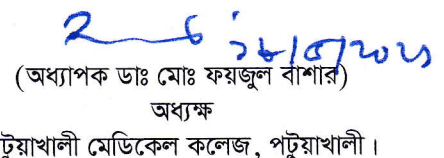 (অধ্যাপক ডাঃ মোঃ ফয়জুল বাশার)
অধ্যক্ষ
টুয়াখালী মেডিকেল কলেজ, পটুয়াখালী।